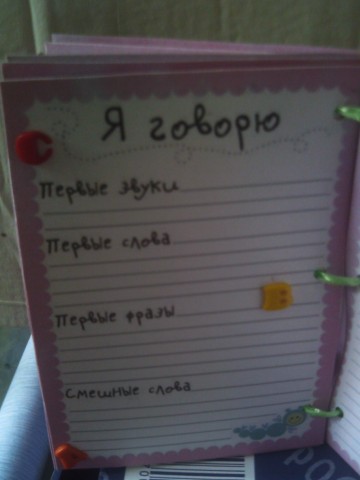 Я говорю
Первые звуки
Первые слова
Первые фразы
Смешные слова